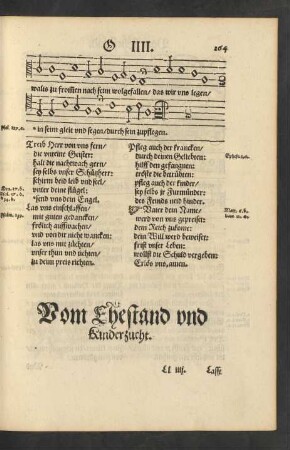 G IIII. 264
walts zu troisten nach seim wolgefallen/ das wir vns legen/
in seim gleit vnd segen/ durch sein zupflegen.
Treib Herr von vns fern/
die vnreine Geister:
halt die nachtwach gern/
sey selbs vnser Schützherr:
schirm beid leib vnd seel/
vnter deine flügel:
send vns dein Engel.
Las vns einschlaffen/
mit guten gedancken/
frölich auffwachen/
vnd von dir nicht wancken:
Las vns mit züchten/
vnser thun vnd tichten/
zu deim preis richten.
Pfleg auch der krancken/
durch deinen Geliebten:
hilff den gefangnen:
tröste die betrübten:
pfleg auch der kinder/
sey selbs jr Furmünder:
des Feinds neid hinder.
Vater dein Name/
werd von vns gepreiset:
dein Reich zukome:
dein Will werd beweiset:
frist vnser Leben:
wollst die Schuld vergeben:
Erlös vns, amen.
Vom Ehestand vnd
Kinderzucht.
Ll iiij. Lasst